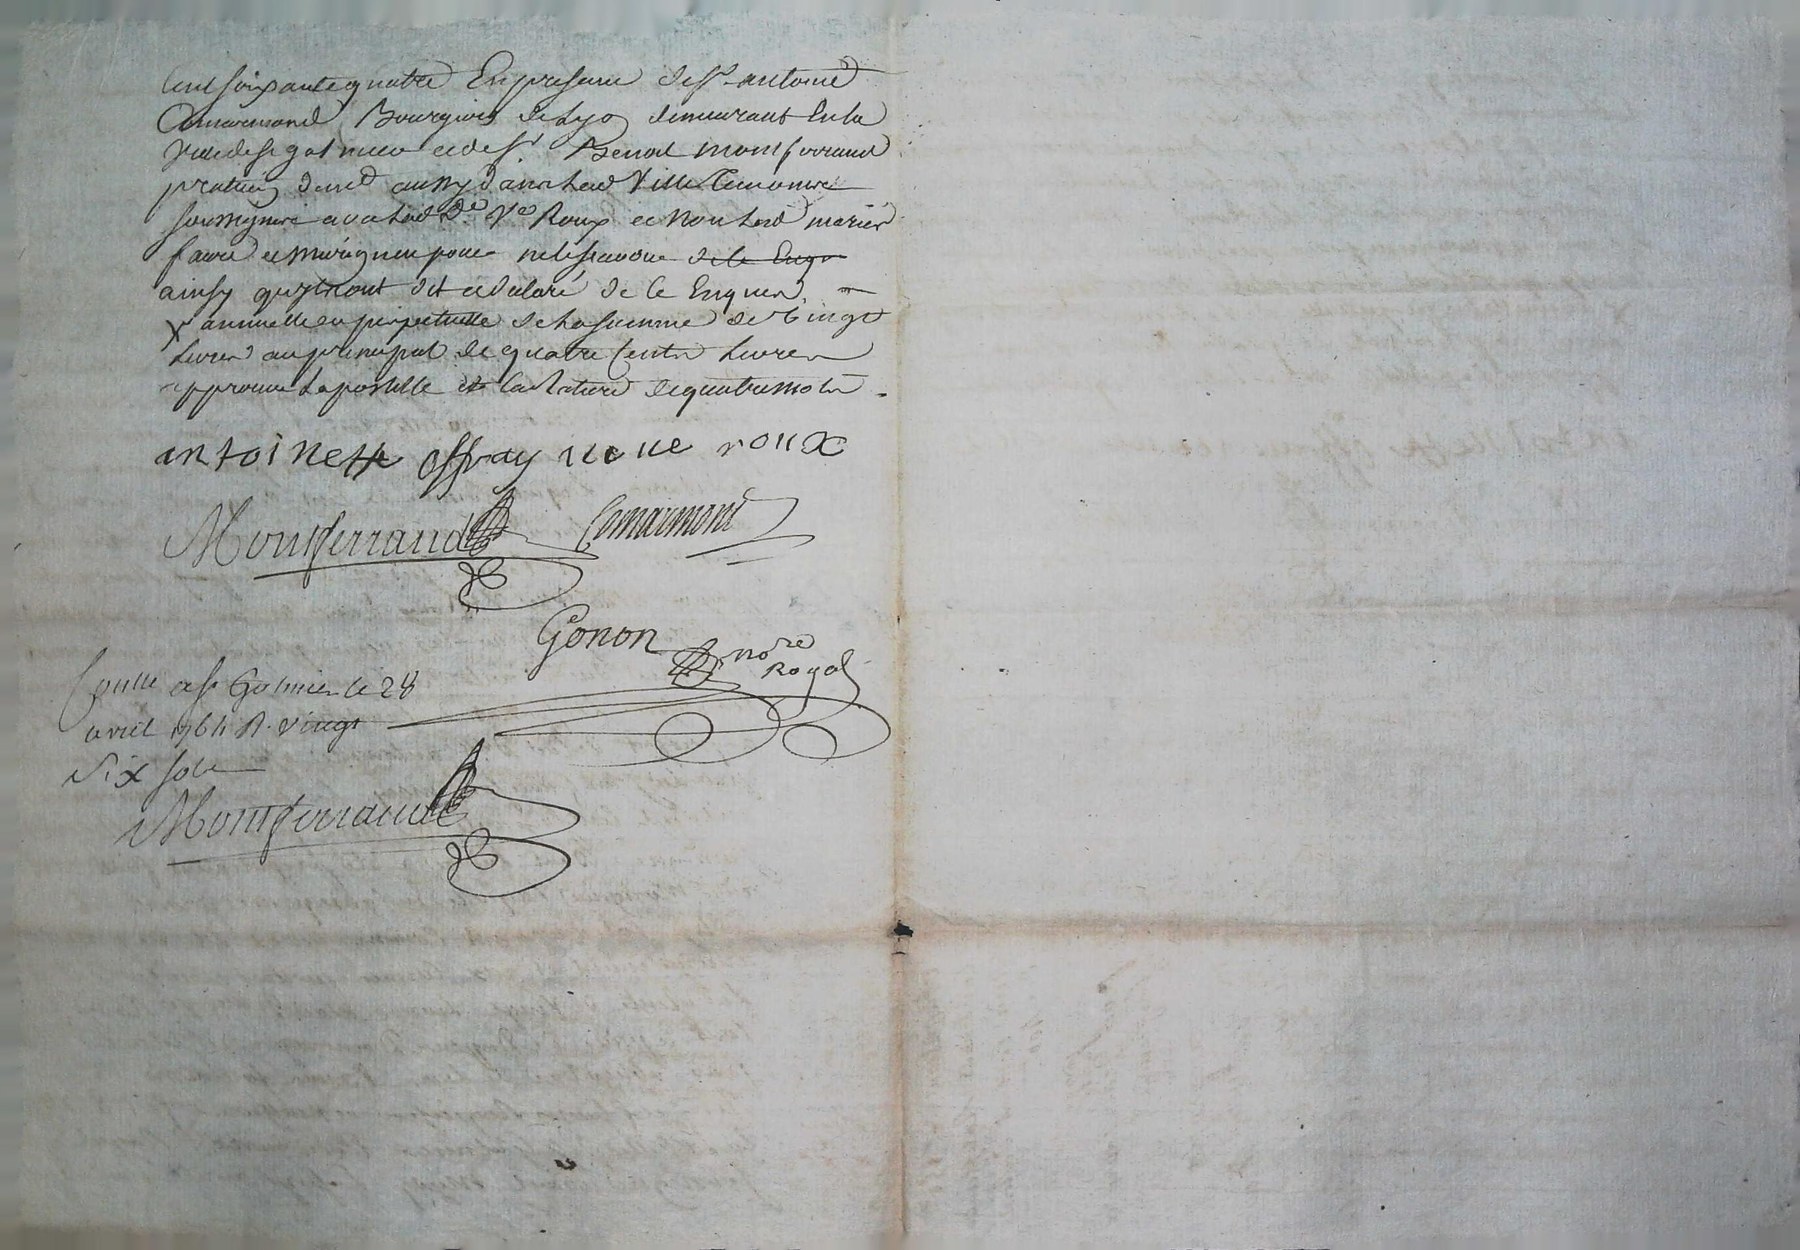 cent soixante quatre En presence de sr. antoine
Comarmond Bourgeois de Lyo demeurant En la
ville de st galmier et de sr. Benoit montferrand
praticien demt aussy dans lad ville temoins
soussignés avec lad De. Ve Roux et non lesd mariés
faure et pour ne le scavoir de le Enq
ainsy qu'ils ont dit et declaré de ce Enquis.
X annuelle ou perpetuelle de la somme de vingt
Livres au principal de quatre Cents Livres
approuve L'apostille et la Rature de quatre mots.
antoinette offray veuve roux
Montferrand Comarmond
Gonon nore
Royal
a st Galmier le 28
avril 1764 R. vingt
six sols
Montferrand